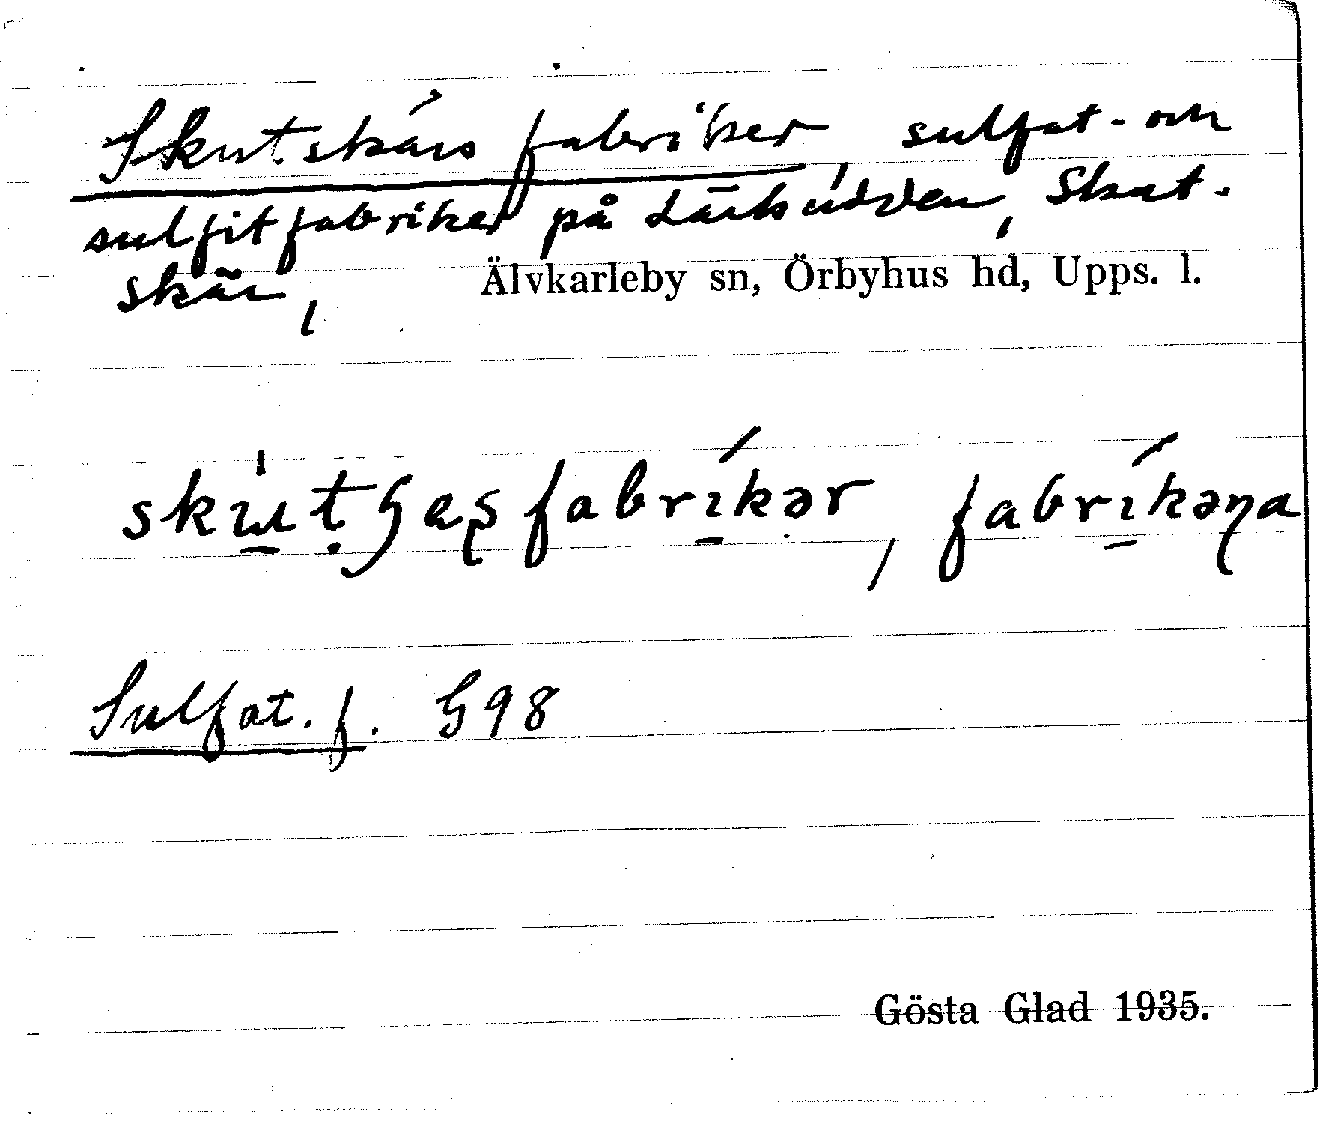 Skutskärs fabriker, sulfat- och
sulfitfabriker på Länsudden, Skut-
skär, Älvkarleby sn, Örbyhus hd, Upps. l.
fabríkər, fabríkəṇa
Sulfat. f. G98
Gösta Glad 1935.